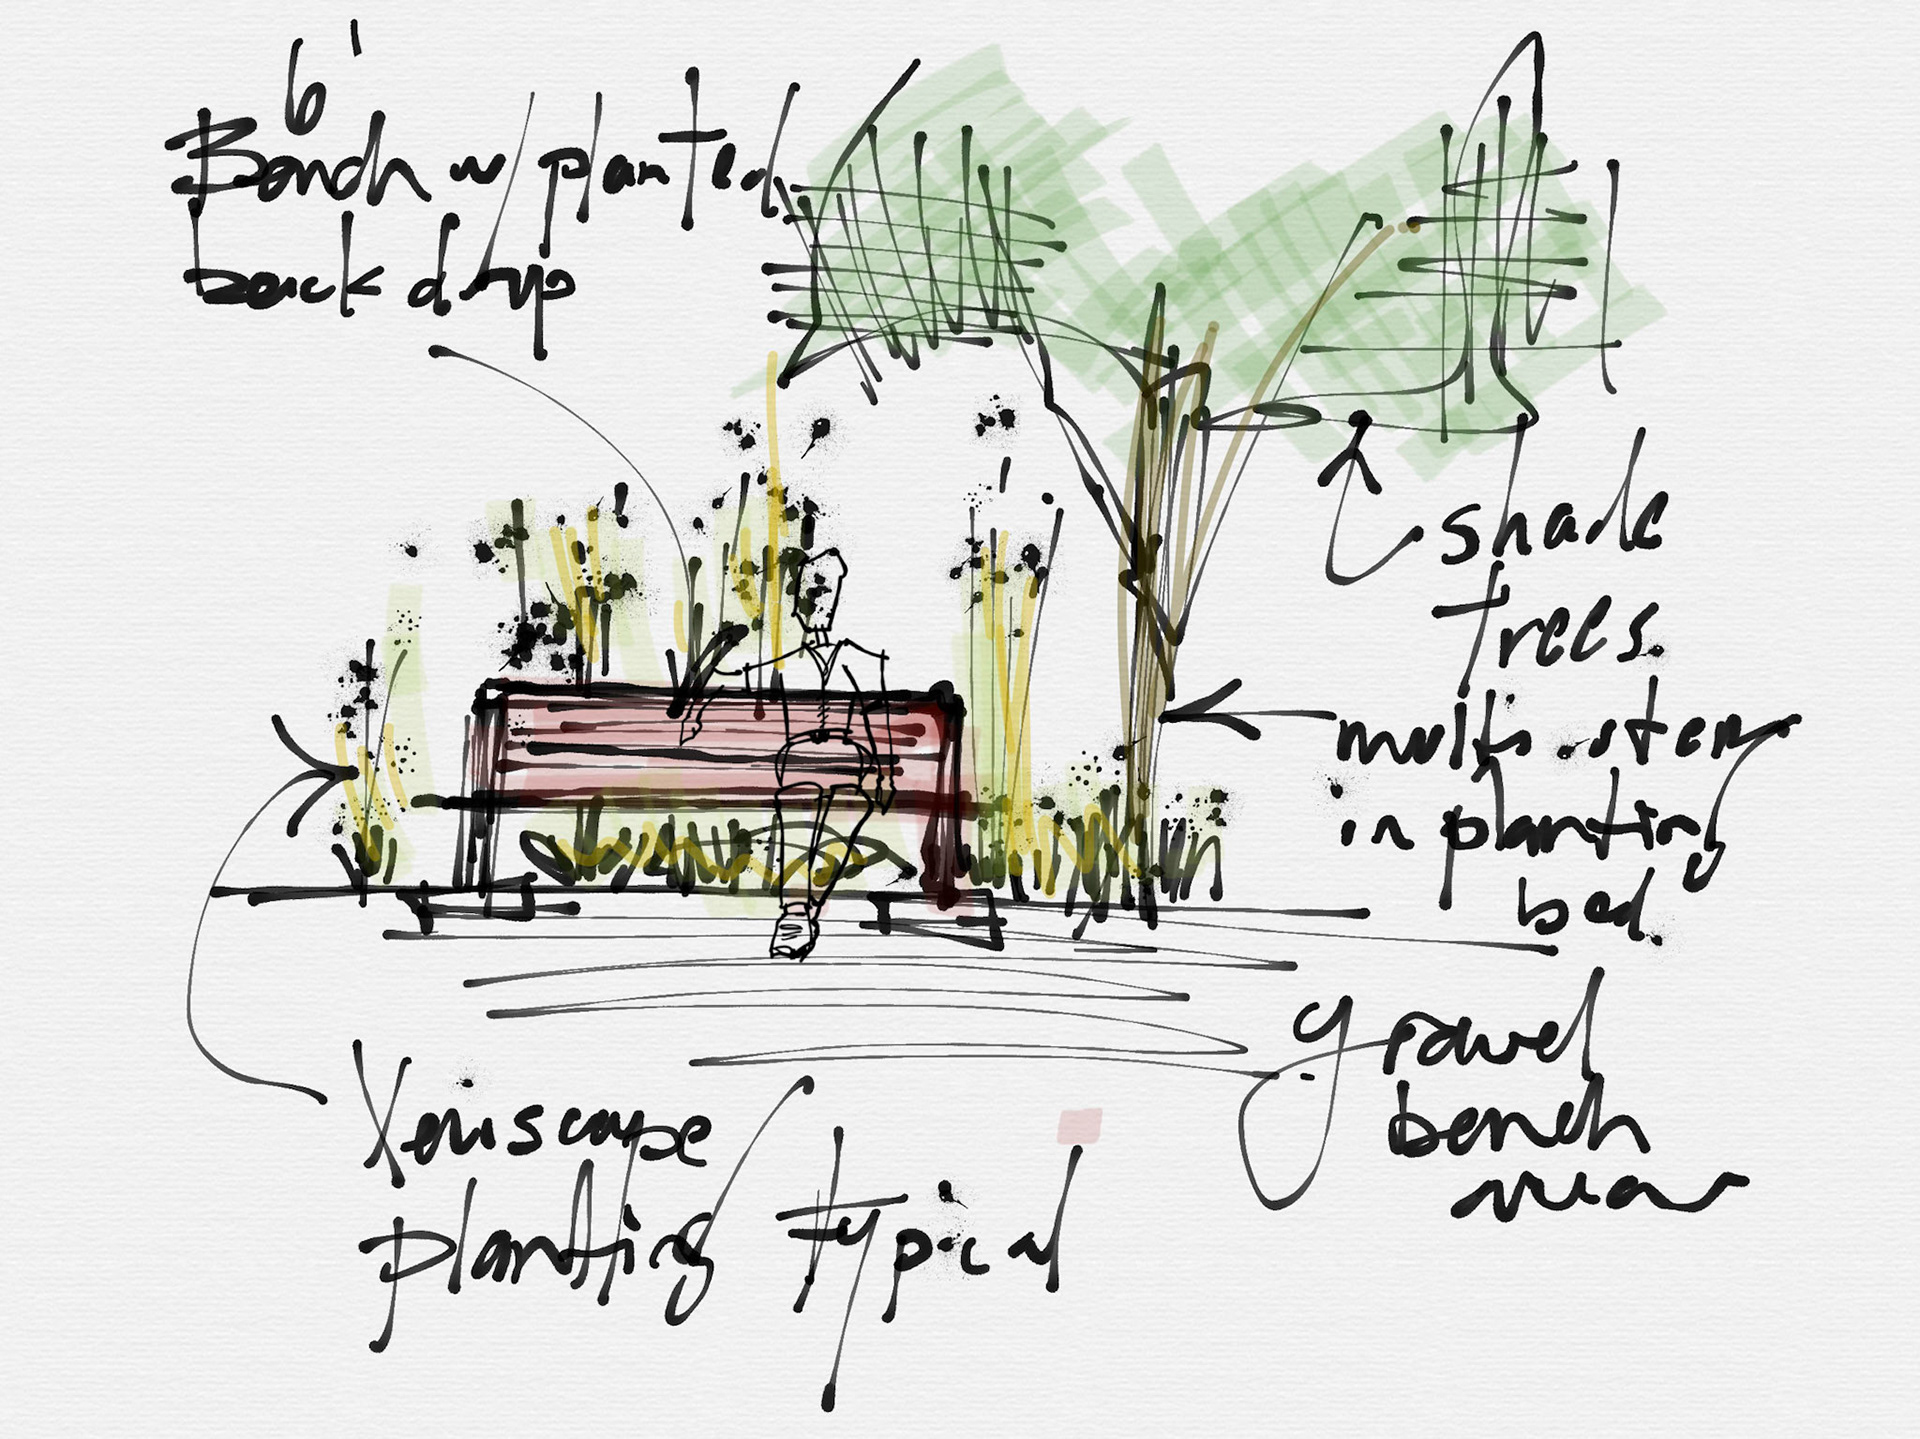 6'
Bench w/ planted
back drop
shade
trees.
multi stem
in planting
bed.
gravel
bench
area
Xeriscape
planting typical